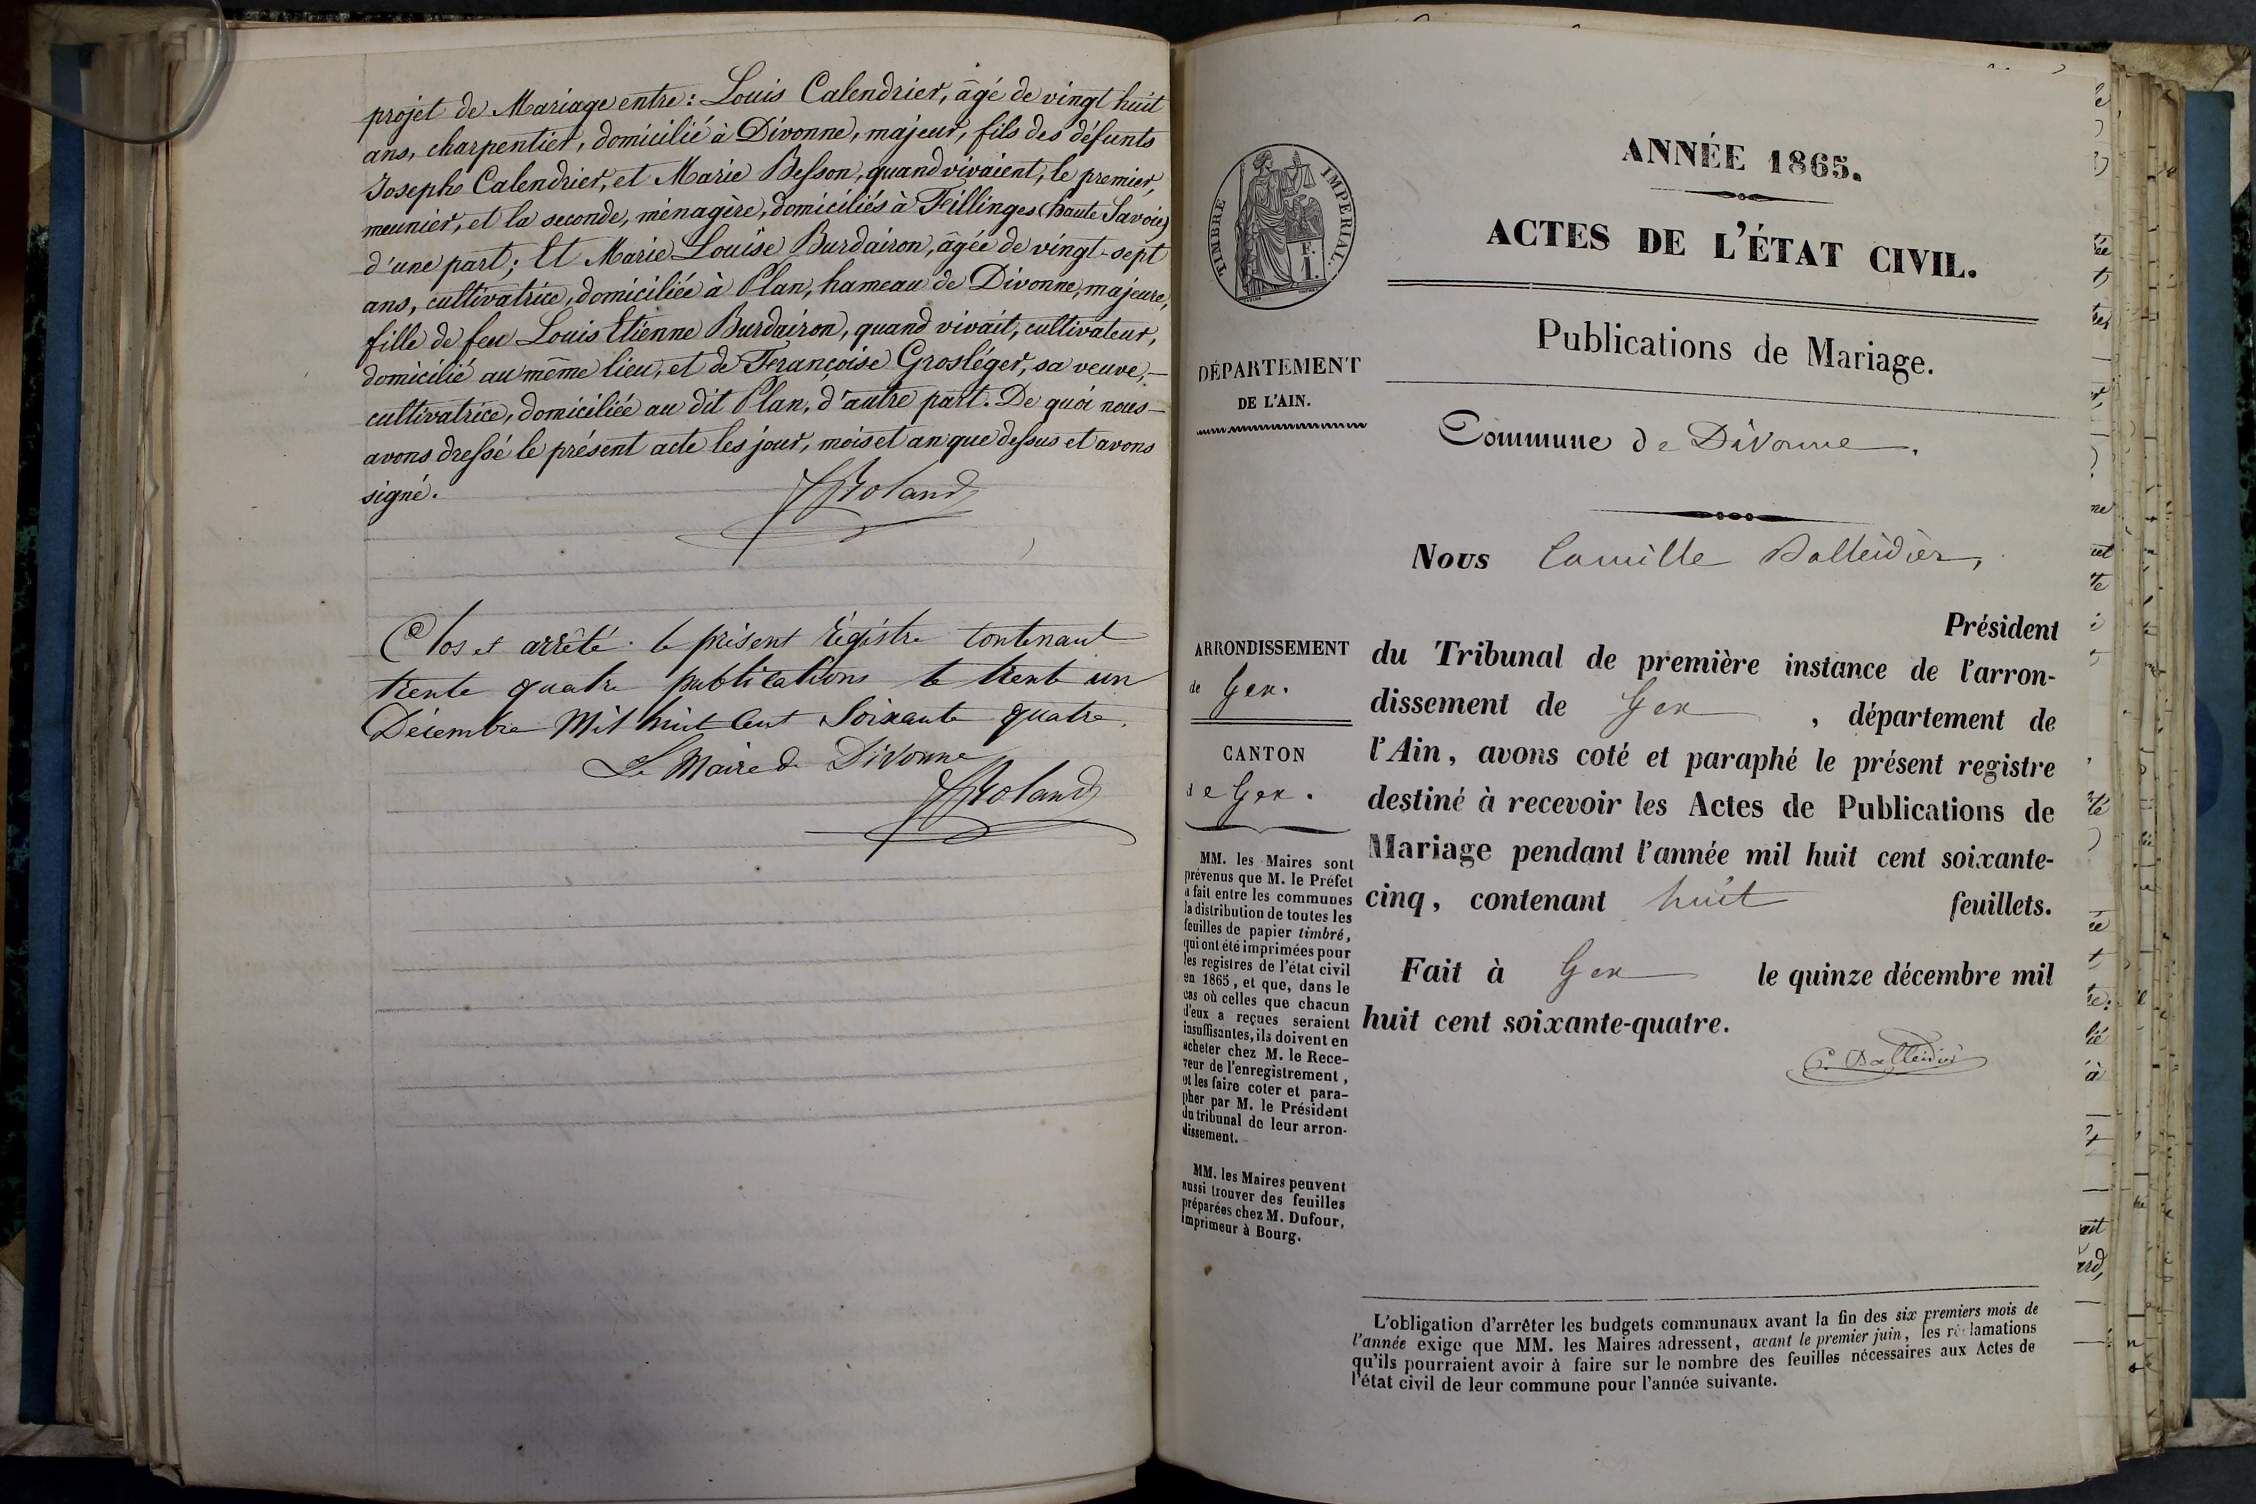 projet de Mariage entre : Louis Calendrier, âgé de vingt huit
ans, charpentier, domicilié à Divonne, majeur, fils des défunts
Joseph Calendrier, et Marie Besson, quand vivaient, le premier,
meunier, et la seconde, ménagère, domiciliés à Fillinges (haute Savoie)
d'une part ; Et Marie Louise Burdairon, âgée de vingt-sept
ans, cultivatrice, domiciliée à Plan, hameau de Divonne, majeure,
fille de feu Louis Etienne Burdairon, quand vivait, cultivateur,
domicilié au même lieu, et de Françoise Grosléger, sa veuve,
cultivatrice, domiciliée au dit Plan, d'autre part. De quoi nous
avons dressé le présent acte les jour, mois et an que dessus et avons
signé.
Roland
Clos et arrêté le présent régistre contenant
trente quatre publications le trente un
Décembre Mil huit Cent Soixante quatre.
Le Maire de Divonne
Roland
TIMBRE IMPERIAL.
F.
1.
DÉPARTEMENT
DE L'AIN.
ARRONDISSEMENT
de Gex.
CANTON
de Gex.
MM. les Maires sont
prévenus que M. le Préfet
a fait entre les communes
la distribution de toutes les
feuilles de papier timbré,
qui ont été imprimées pour
les registres de l'état civil
en 1865, et que, dans le
cas où celles que chacun
d'eux a reçues seraient
insuffisantes, ils doivent en
acheter chez M. le Rece-
veur de l'enregistrement,
et les faire coter et para-
pher par M. le Président
du tribunal de leur arron-
dissement.
MM. les Maires peuvent
aussi trouver des feuilles
préparées chez M. Dufour,
imprimeur à Bourg.
ANNÉE 1865.
ACTES DE L'ÉTAT CIVIL.
Publications de Mariage.
Commune de Divonne.
Nous Camille Dalleidier,
Président
du Tribunal de première instance de l'arron-
dissement de Gex, département de
l'Ain, avons coté et paraphé le présent registre
destiné à recevoir les Actes de Publications de
Mariage pendant l'année mil huit cent soixante-
cinq, contenant huit feuillets.
Fait à Gex le quinze décembre mil
huit cent soixante-quatre.
C. Dalleidier
L'obligation d'arrêter les budgets communaux avant la fin des six premiers mois de
l'année exige que MM. les Maires adressent, avant le premier juin, les réclamations
qu'ils pourraient avoir à faire sur le nombre des feuilles nécessaires aux Actes de
l'état civil de leur commune pour l'année suivante.